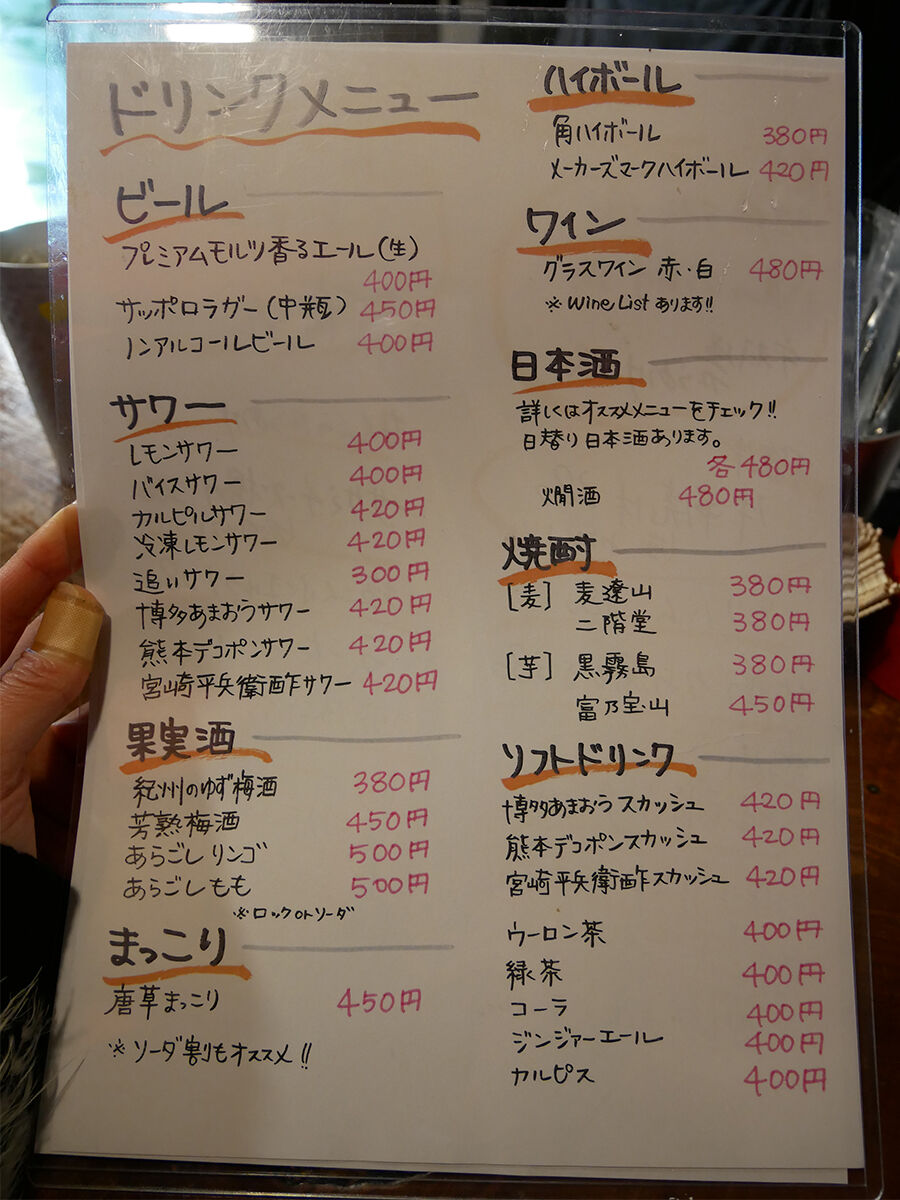 ドリンクメニュー
ビール
プレミアムモルツ香るエール(生)
400円
サッポロラガー(中瓶) 450円
ノンアルコールビール 400円
サワー
レモンサワー 400円
バイスサワー 400円
カルピルサワー 420円
冷凍レモンサワー 420円
追いサワー 300円
博多あまおうサワー 420円
熊本デコポンサワー 420円
宮崎平兵衛酢サワー 420円
果実酒
紀州のゆず梅酒 380円
芳熟梅酒 450円
あらごしリンゴ 500円
あらごしもも 500円
※ロックorソーダ
まっこり
唐草まっこり 450円
※ソーダ割もオススメ!!
ハイボール
角ハイボール 380円
メーカーズマークハイボール 420円
ワイン
グラスワイン 赤・白 480円
※Wine List あります!!
日本酒
詳しくはオススメメニューをチェック!!
日替り日本酒あります。
各480円
燗酒 480円
焼酎
[麦] 麦遼山 380円
二階堂 380円
[芋] 黒霧島 380円
富乃宝山 450円
ソフトドリンク
博多あまおうスカッシュ 420円
熊本デコポンスカッシュ 420円
宮崎平兵衛酢スカッシュ 420円
ウーロン茶 400円
緑茶 400円
コーラ 400円
ジンジャーエール 400円
カルピス 400円